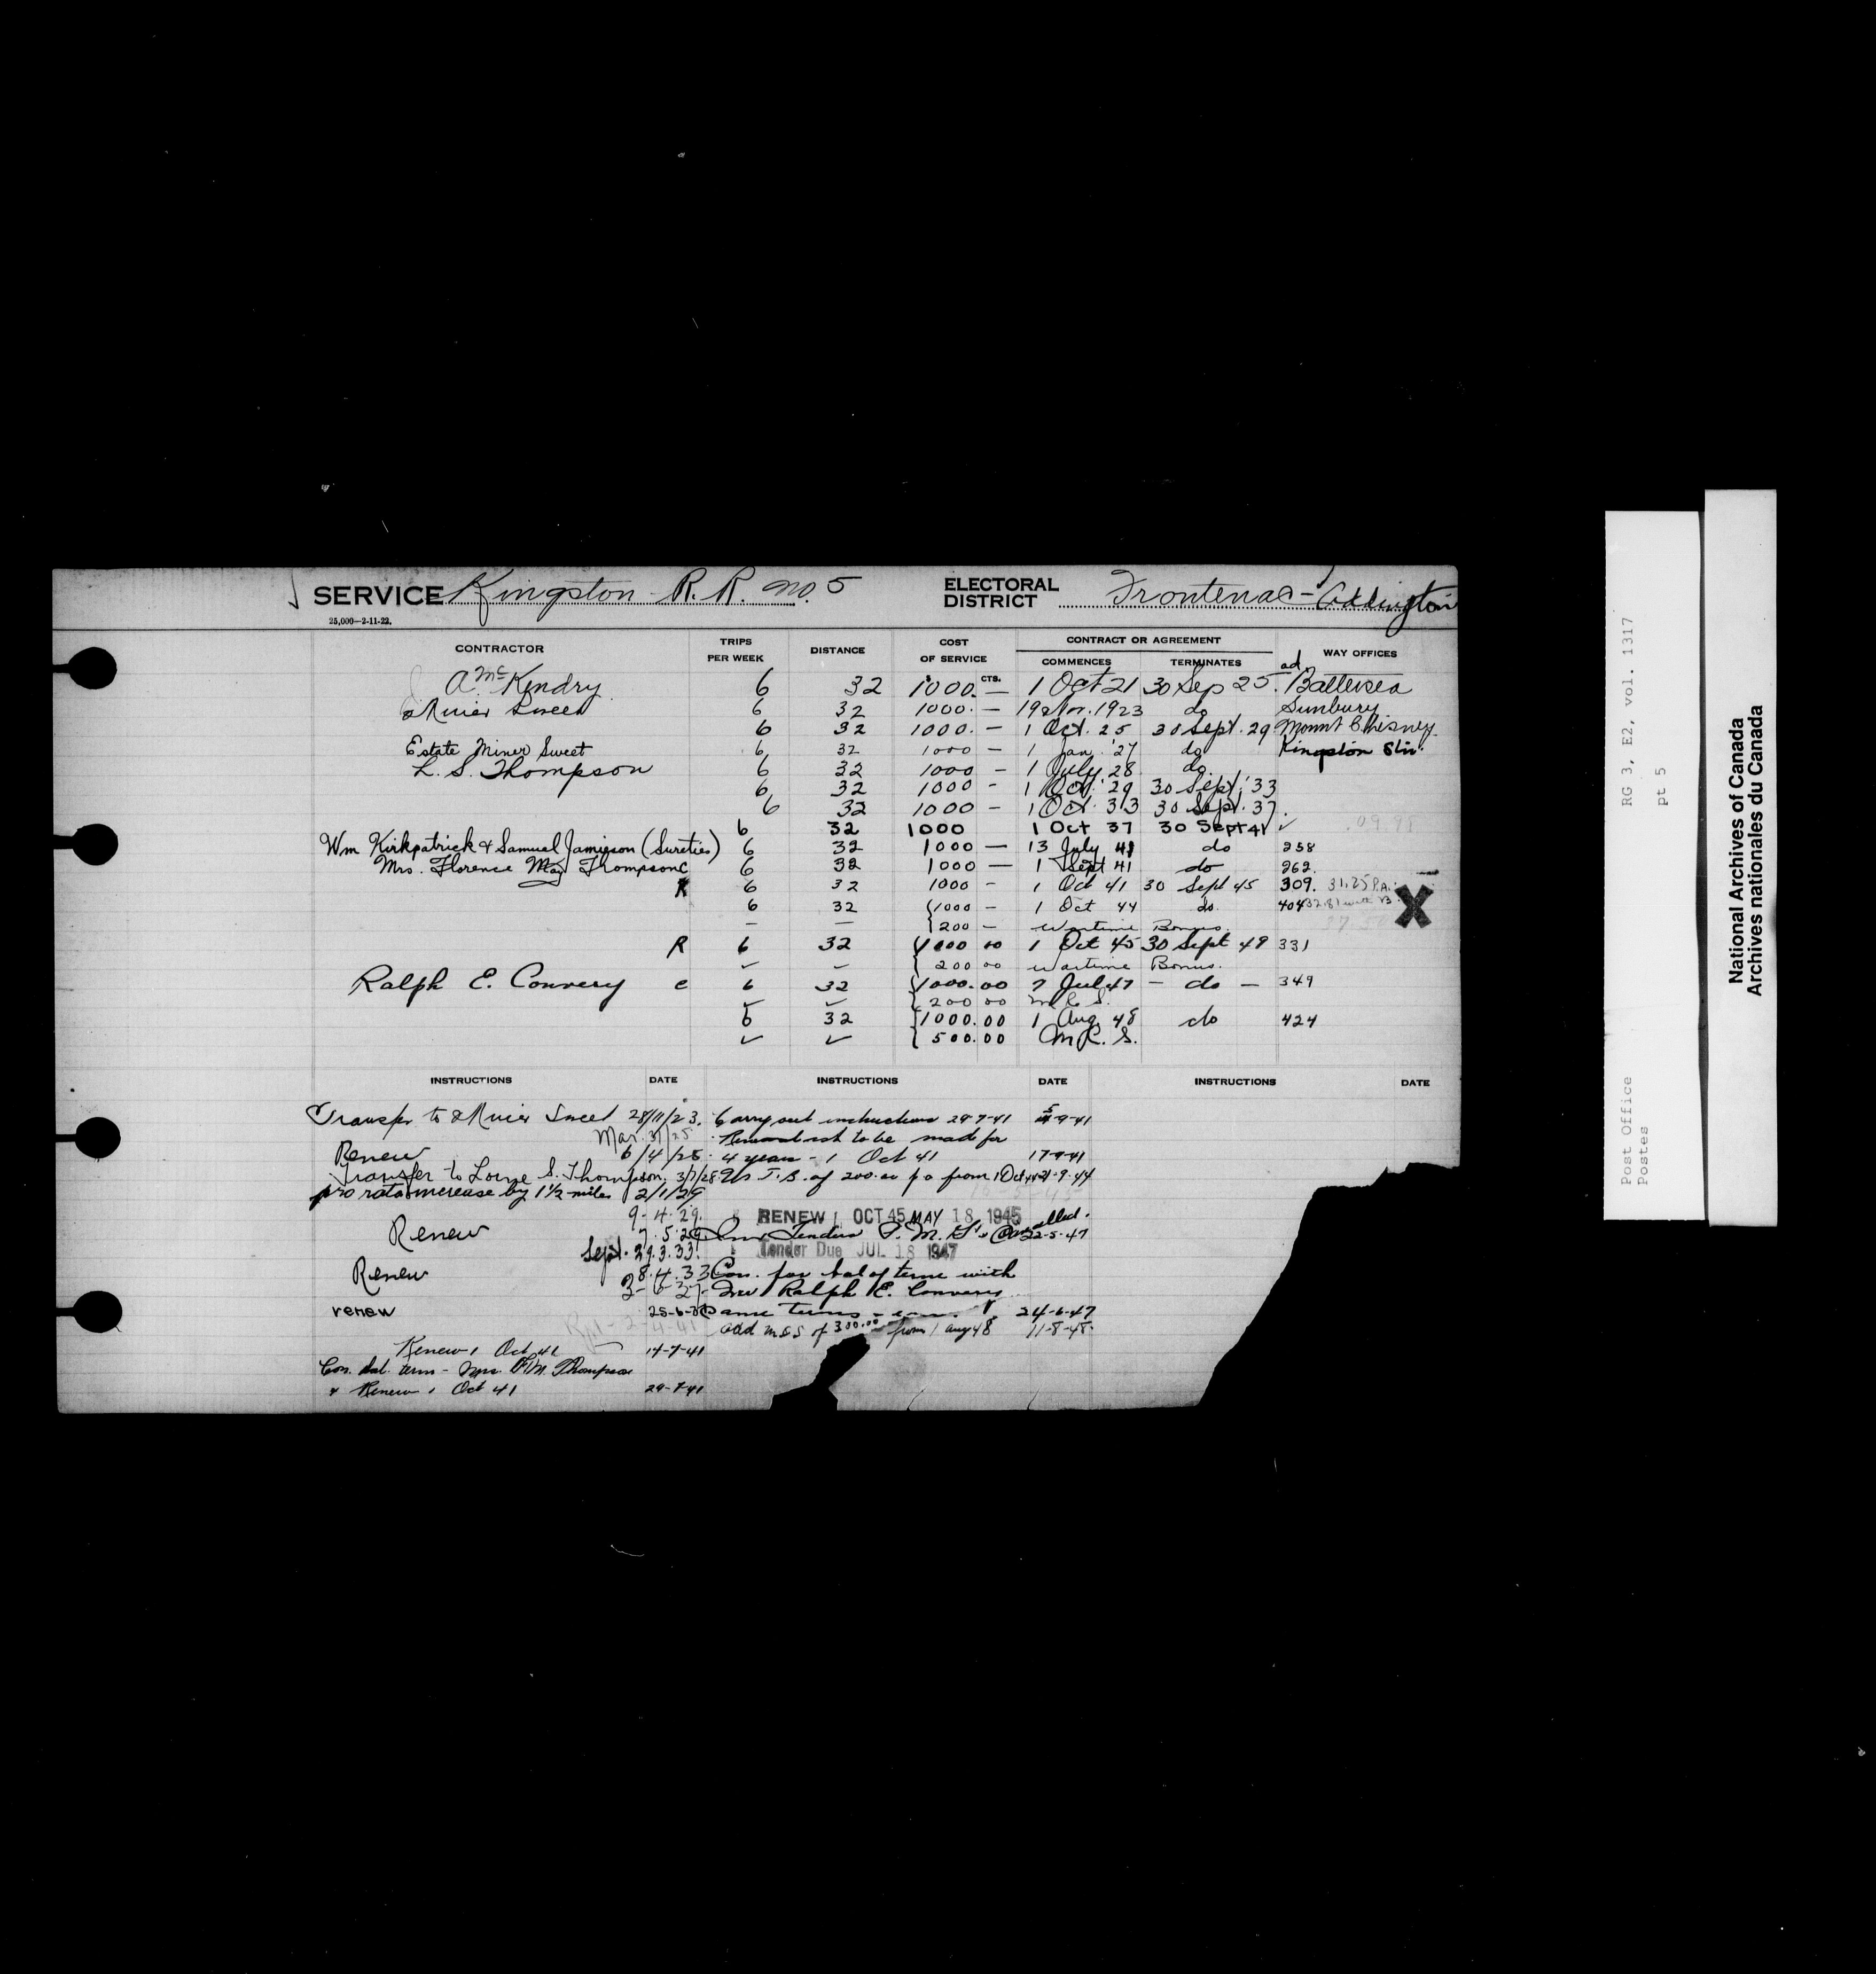 SERVICE Kingston R.R. No. 5 ELECTORAL DISTRICT Frontenac-Addington
25,000—2-11-22.
CONTRACTOR TRIPS PER WEEK DISTANCE COST OF SERVICE CONTRACT OR AGREEMENT WAY OFFICES
CTS. COMMENCES TERMINATES
A McKendry 6 32 1000. — 1 Oct 21 30 Sep 25. ad Battersea
Miner Sweet 6 32 1000. — 19 Nov. 1923 do Sunbury
6 32 1000. — 1 Oct. 25 30 Sept. 29 Mount Chesney
Estate Miner Sweet 6 32 1000 — 1 Jan. '27 do Kingston Stn.
L. S. Thompson 6 32 1000 — 1 July 28 do.
6 32 1000 — 1 Oct. '29 30 Sept. '33
6 32 1000 — 1 Oct. 33 30 Sept. 37
6 32 1000 1 Oct 37 30 Sept 41 ✓
Wm Kirkpatrick & Samuel Jamieson (Sureties) 6 32 1000 — 13 July 41 do 258
Mrs. Florence May Thompson C 6 32 1000 — 1 Sept 41 do 262
R 6 32 1000 — 1 Oct 41 30 Sept 45 309. 31.25 P.A.
6 32 {1000 — 1 Oct 44 do. 404 32.81 with
— — {200 — Wartime Bonus.
R 6 32 {1000 00 1 Oct 45 30 Sept 49 331
✓ ✓ {200 00 Wartime Bonus.
Ralph E. Convery c 6 32 {1000.00 7 Jul 47 — do — 349
{200 00 M.C.S.
32 {1000.00 1 Aug. 48 do 424
✓ ✓ {500.00 M.C.S.
INSTRUCTIONS DATE INSTRUCTIONS DATE INSTRUCTIONS DATE
Transfer to Miner Sweet 28/11/23. Carry out instructions 29-7-41 -9-41
Mar. 31/25. Renewal not to be made for
Renew 6/4/25. 4 years - 1 Oct 41 17-9-41
Transfer to Lorne S. Thompson, 3/7/28 of 200.00 p a from 1 Oct 44 21-9-44
pro rata increase by 1½ miles 2/1/29
9-4-29. RENEW 1 OCT 45 MAY 18 1945
Renew 7.5.29 Tenders P.M. Cancelled. 22-5-47
Sept. 29.3.33. Tender Due JUL 18 1947
Renew 8.4.33 Con. for bal of term with
2-6-37- Ralph E. Convery
renew 25-6-37 Same terms 24-6-47
add M.C.S of 300.00 from 1 Aug 48 11-8-48.
Renew 1 Oct 41 14-7-41
Con. bal. term - Mrs. F.M. Thompson
& Renew 1 Oct 41 29-7-41
RG 3, E2, vol. 1317
pt 5
Post Office
Postes
National Archives of Canada
Archives nationales du Canada